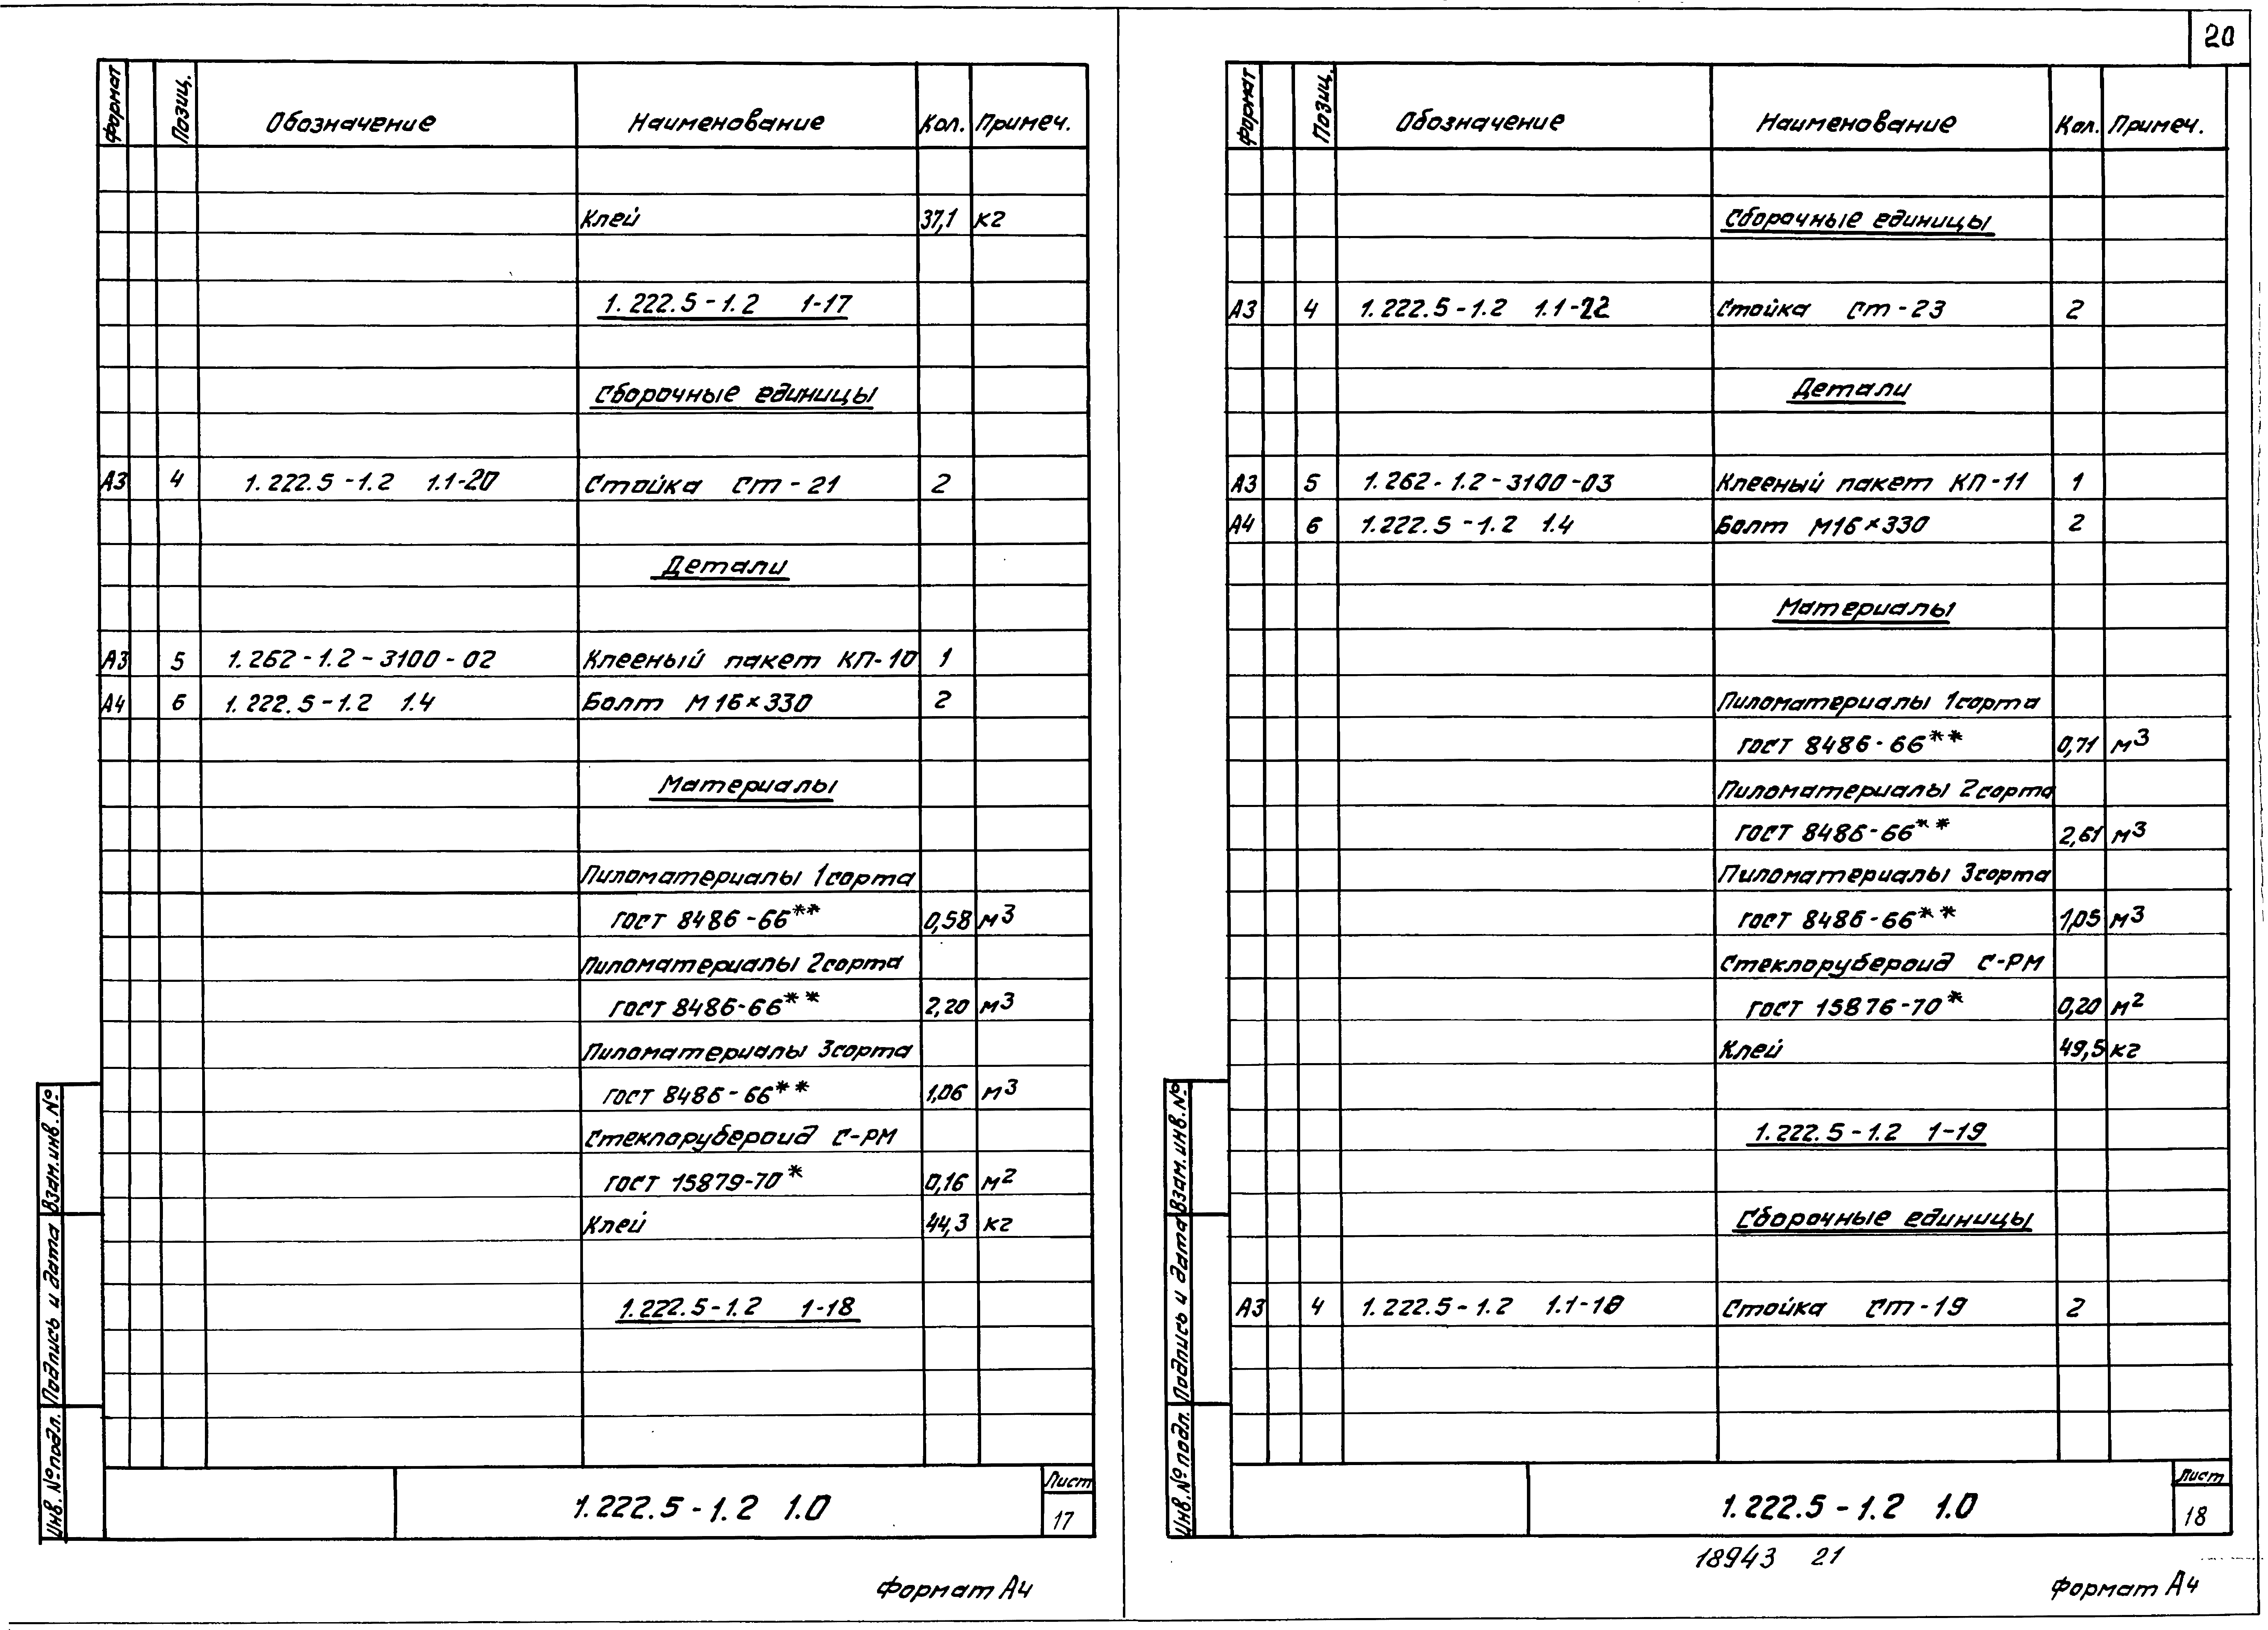 20
Формат Позиц. Обозначение Наименование Кол. Примеч.
Клей 37,1 кг
1.222.5-1.2 1-17
Сборочные единицы
А3 4 1.222.5-1.2 1.1-20 Стойка Ст-21 2
Детали
А3 5 1.262-1.2-3100-02 Клееный пакет КП-10 1
А4 6 1.222.5-1.2 1.4 Болт М16×330 2
Материалы
Пиломатериалы 1сорта
ГОСТ 8486-66** 0,58 м3
Пиломатериалы 2сорта
ГОСТ 8486-66** 2,20 м3
Пиломатериалы 3сорта
ГОСТ 8486-66** 1,06 м3
Стеклорубероид С-РМ
ГОСТ 15879-70* 0,16 м2
Клей 44,3 кг
1.222.5-1.2 1-18
Инв. № подл. Подпись и дата Взам.инв. №
1.222.5-1.2 1.0
Лист
17
Формат А4
Формат Позиц. Обозначение Наименование Кол. Примеч.
Сборочные единицы
А3 4 1.222.5-1.2 1.1-22 Стойка Ст-23 2
Детали
А3 5 1.262-1.2-3100-03 Клееный пакет КП-11 1
А4 6 1.222.5-1.2 1.4 Болт М16×330 2
Материалы
Пиломатериалы 1сорта
ГОСТ 8486-66** 0,71 м3
Пиломатериалы 2сорта
ГОСТ 8486-66** 2,61 м3
Пиломатериалы 3сорта
ГОСТ 8486-66** 1,05 м3
Стеклорубероид С-РМ
ГОСТ 15876-70* 0,20 м2
Клей 49,5 кг
1.222.5-1.2 1-19
Сборочные единицы
А3 4 1.222.5-1.2 1.1-18 Стойка Ст-19 2
Инв. № подл. Подпись и дата Взам.инв. №
1.222.5-1.2 1.0
Лист
18
18943 21
Формат А4